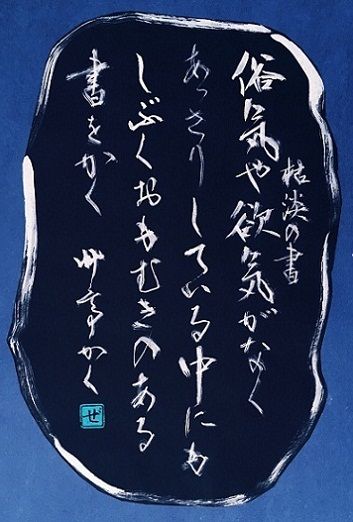 枯淡の書
俗気や欲気がなく
あっさりしている中にも
しぶくおもむきのある
書をかく 艸亭かく
ぜ